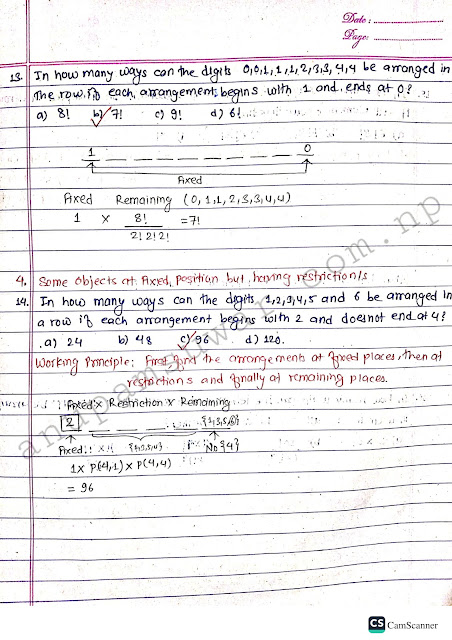 Date:
Page:
13. In how many ways can the digits 0,0,1,1,1,2,3,3,4,4 be arranged in
the row if each arrangement begins with 1 and ends at 0?
a) 8! b) 7! c) 9! d) 6!
1 _ _ _ _ _ _ _ _ 0
Fixed
Fixed Remaining (0,1,1,2,3,3,4,4)
1 × 8!/2!2!2! = 7!
4. Some objects at fixed position but having restriction/s
14. In how many ways can the digits 1,2,3,4,5 and 6 be arranged in
a row if each arrangement begins with 2 and does not end at 4?
a) 24 b) 48 c) 96 d) 120.
Working Principle: First find the arrangements at fixed places, then at
restrictions and finally at remaining places.
Fixed × Restriction × Remaining
2 _ _ _ _ {1,3,5,6}
Fixed No {4}
1 × P(4,1) × P(4,4)
= 96
anupamsuwar.com.np
CS CamScanner